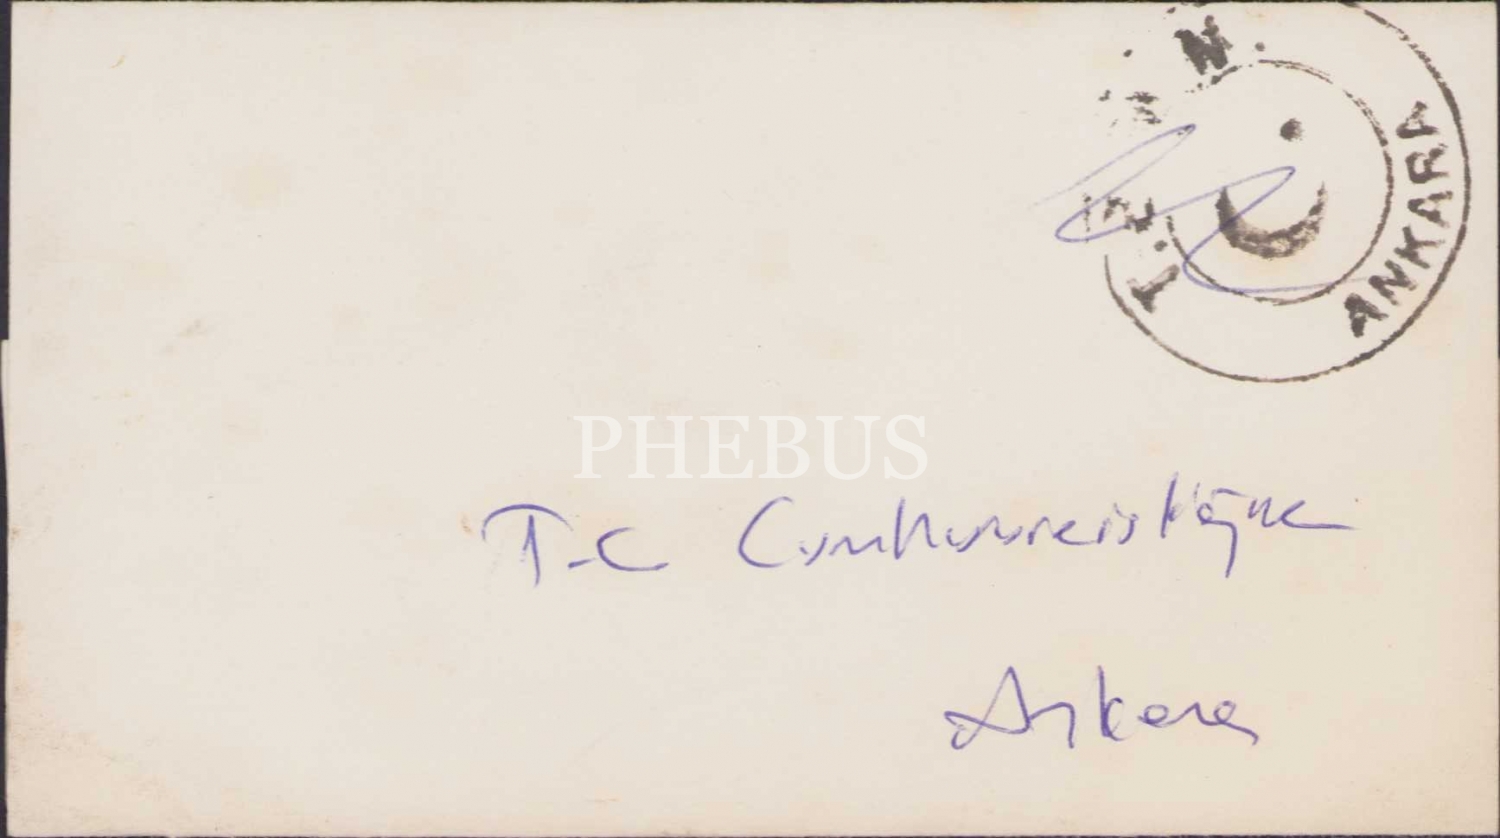 ANKARA
PHEBUS
T-C Cumhurreisliğine
Ankara